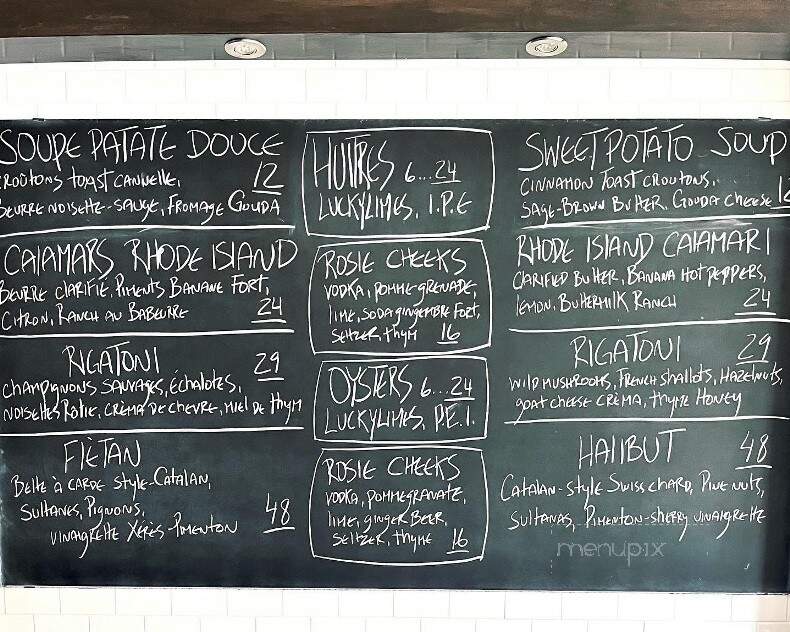 SOUPE PATATE DOUCE
CROÛTONS TOAST CANNELLE, 12
BEURRE NOISETTE-SAUGE, FROMAGE GOUDA
CALAMARS RHODE ISLAND
BEURRE CLARIFIÉ, PIMENTS BANANE FORT,
CITRON, RANCH AU BABEURRE 24
RIGATONI 29
CHAMPIGNONS SAUVAGES, ÉCHALOTES,
NOISETTES ROTIE, CRÈMA DE CHEVRE, MIEL DE THYM
FLÈTAN
BETTE À CARDE STYLE-CATALAN,
SULTANES, PIGNONS, 48
VINAIGRETTE XERÈS-PIMENTON
HUÎTRES 6...24
LUCKYLIMES, I.P.E
ROSIE CHEEKS
VODKA, POMME GRENADE,
LIME, SODA GINGEMBRE FORT,
SELTZER, THYM 16
OYSTERS 6...24
LUCKYLIMES, P.E.I.
ROSIE CHEEKS
VODKA, POMMEGRANATE,
LIME, GINGER BEER,
SELTZER, THYME 16
SWEET POTATO SOUP
CINNAMON TOAST CROUTONS,
SAGE-BROWN BUTTER, GOUDA CHEESE
RHODE ISLAND CALAMARI
CLARIFIED BUTTER, BANANA HOT PEPPERS,
LEMON, BUTTERMILK RANCH 24
RIGATONI 29
WILD MUSHROOMS, FRENCH SHALLOTS, HAZELNUTS,
GOAT CHEESE CRÈMA, THYME HONEY
HALIBUT 48
CATALAN-STYLE SWISS CHARD, PINE NUTS,
SULTANAS, PIMENTON-SHERRY VINAIGRETTE
menupix